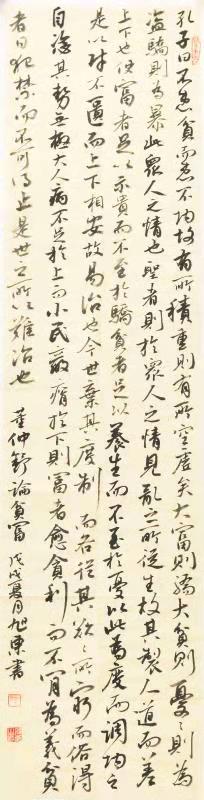 孔子曰不患貧而患不均故有所積重則有所空虛矣大富則驕大貧則憂々則為
盜驕則為暴此眾人之情也聖者則於眾人之情見亂之所從生故其製人道而差
上下也使富者足以示貴而不至於驕貧者足以養生而不至於憂以此為度而調均之
是以財不匱而上下相安故易治也今世棄其度制而各從其欲々所窮而俗得
自恣其勢無極大人病不足於上而小民羸瘠於下則富者愈貪利而不肯為義貧
者日犯禁而不可得止是世之所以難治也 董仲舒論貧富 戊戌夏月旭東書